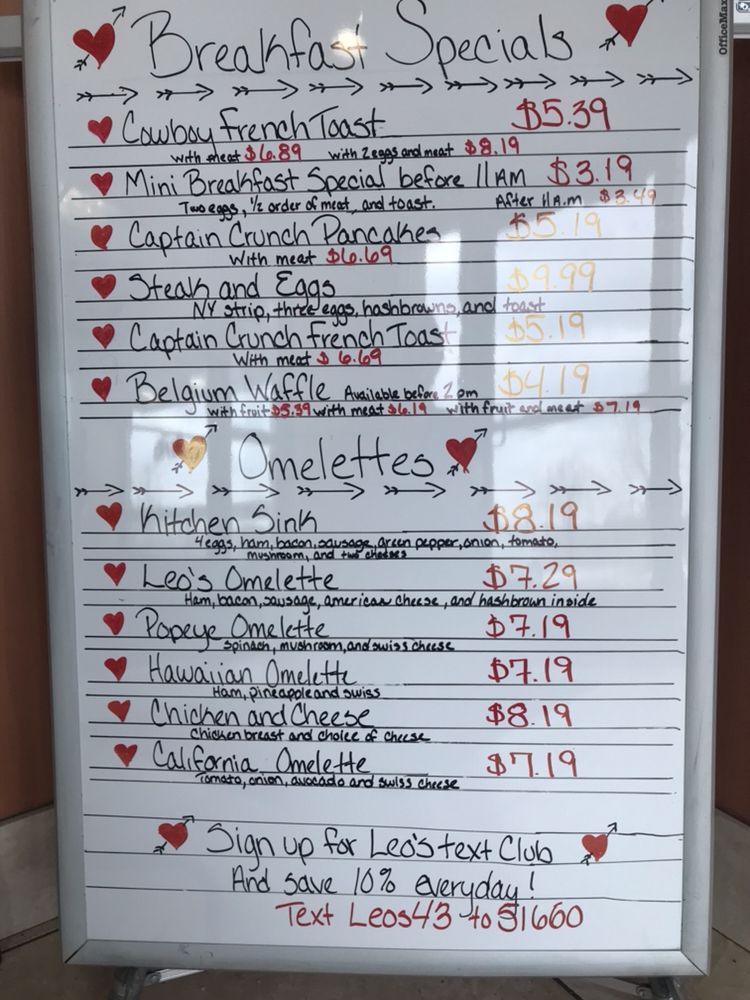 OfficeMax
Breakfast Specials
Cowboy French Toast $5.39
with meat $6.89 with 2 eggs and meat $8.19
Mini Breakfast Special before 11 AM $3.19
Two eggs, 1/2 order of meat, and toast. After 11 A.m $3.49
Captain Crunch Pancakes $5.19
With meat $6.69
Steak and Eggs $9.99
NY strip, three eggs, hashbrowns, and toast
Captain Crunch French Toast $5.19
With meat $6.69
Belgium Waffle Available before 2 pm $4.19
with fruit $5.39 with meat $6.19 with fruit and meat $7.19
Omelettes
Kitchen Sink $8.19
4 eggs, ham, bacon, sausage, green pepper, onion, tomato,
mushroom, and two cheeses
Leo's Omelette $7.29
Ham, bacon, sausage, american cheese, and hashbrown inside
Popeye Omelette $7.19
Spinach, mushroom, and swiss cheese
Hawaiian Omelette $7.19
Ham, pineapple and swiss
Chicken and Cheese $8.19
Chicken breast and choice of cheese
California Omelette $7.19
Tomato, onion, avocado and swiss cheese
Sign up for Leo's text Club
And save 10% everyday!
Text Leos43 to 51660